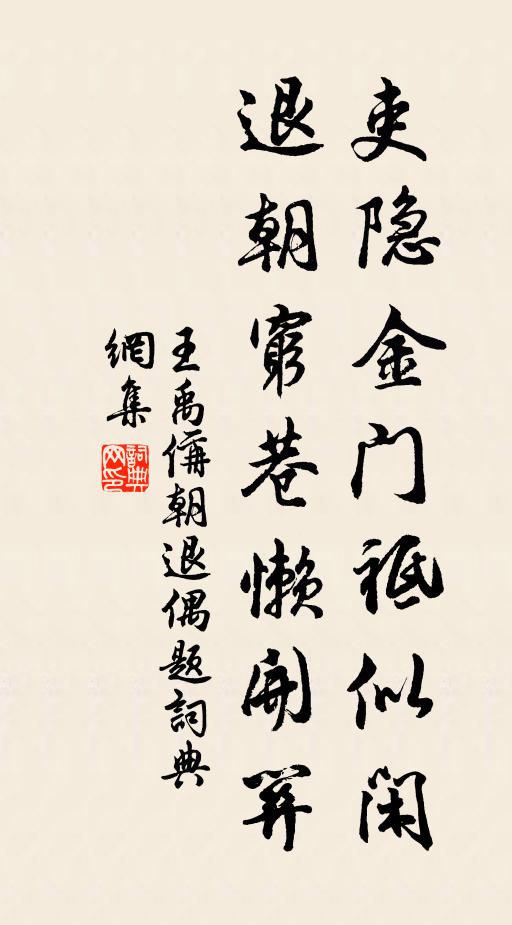 吏隐金门祗似闲
退朝穷巷懒开关
王禹偁朝退偶題詞典
網集
詞典
网印